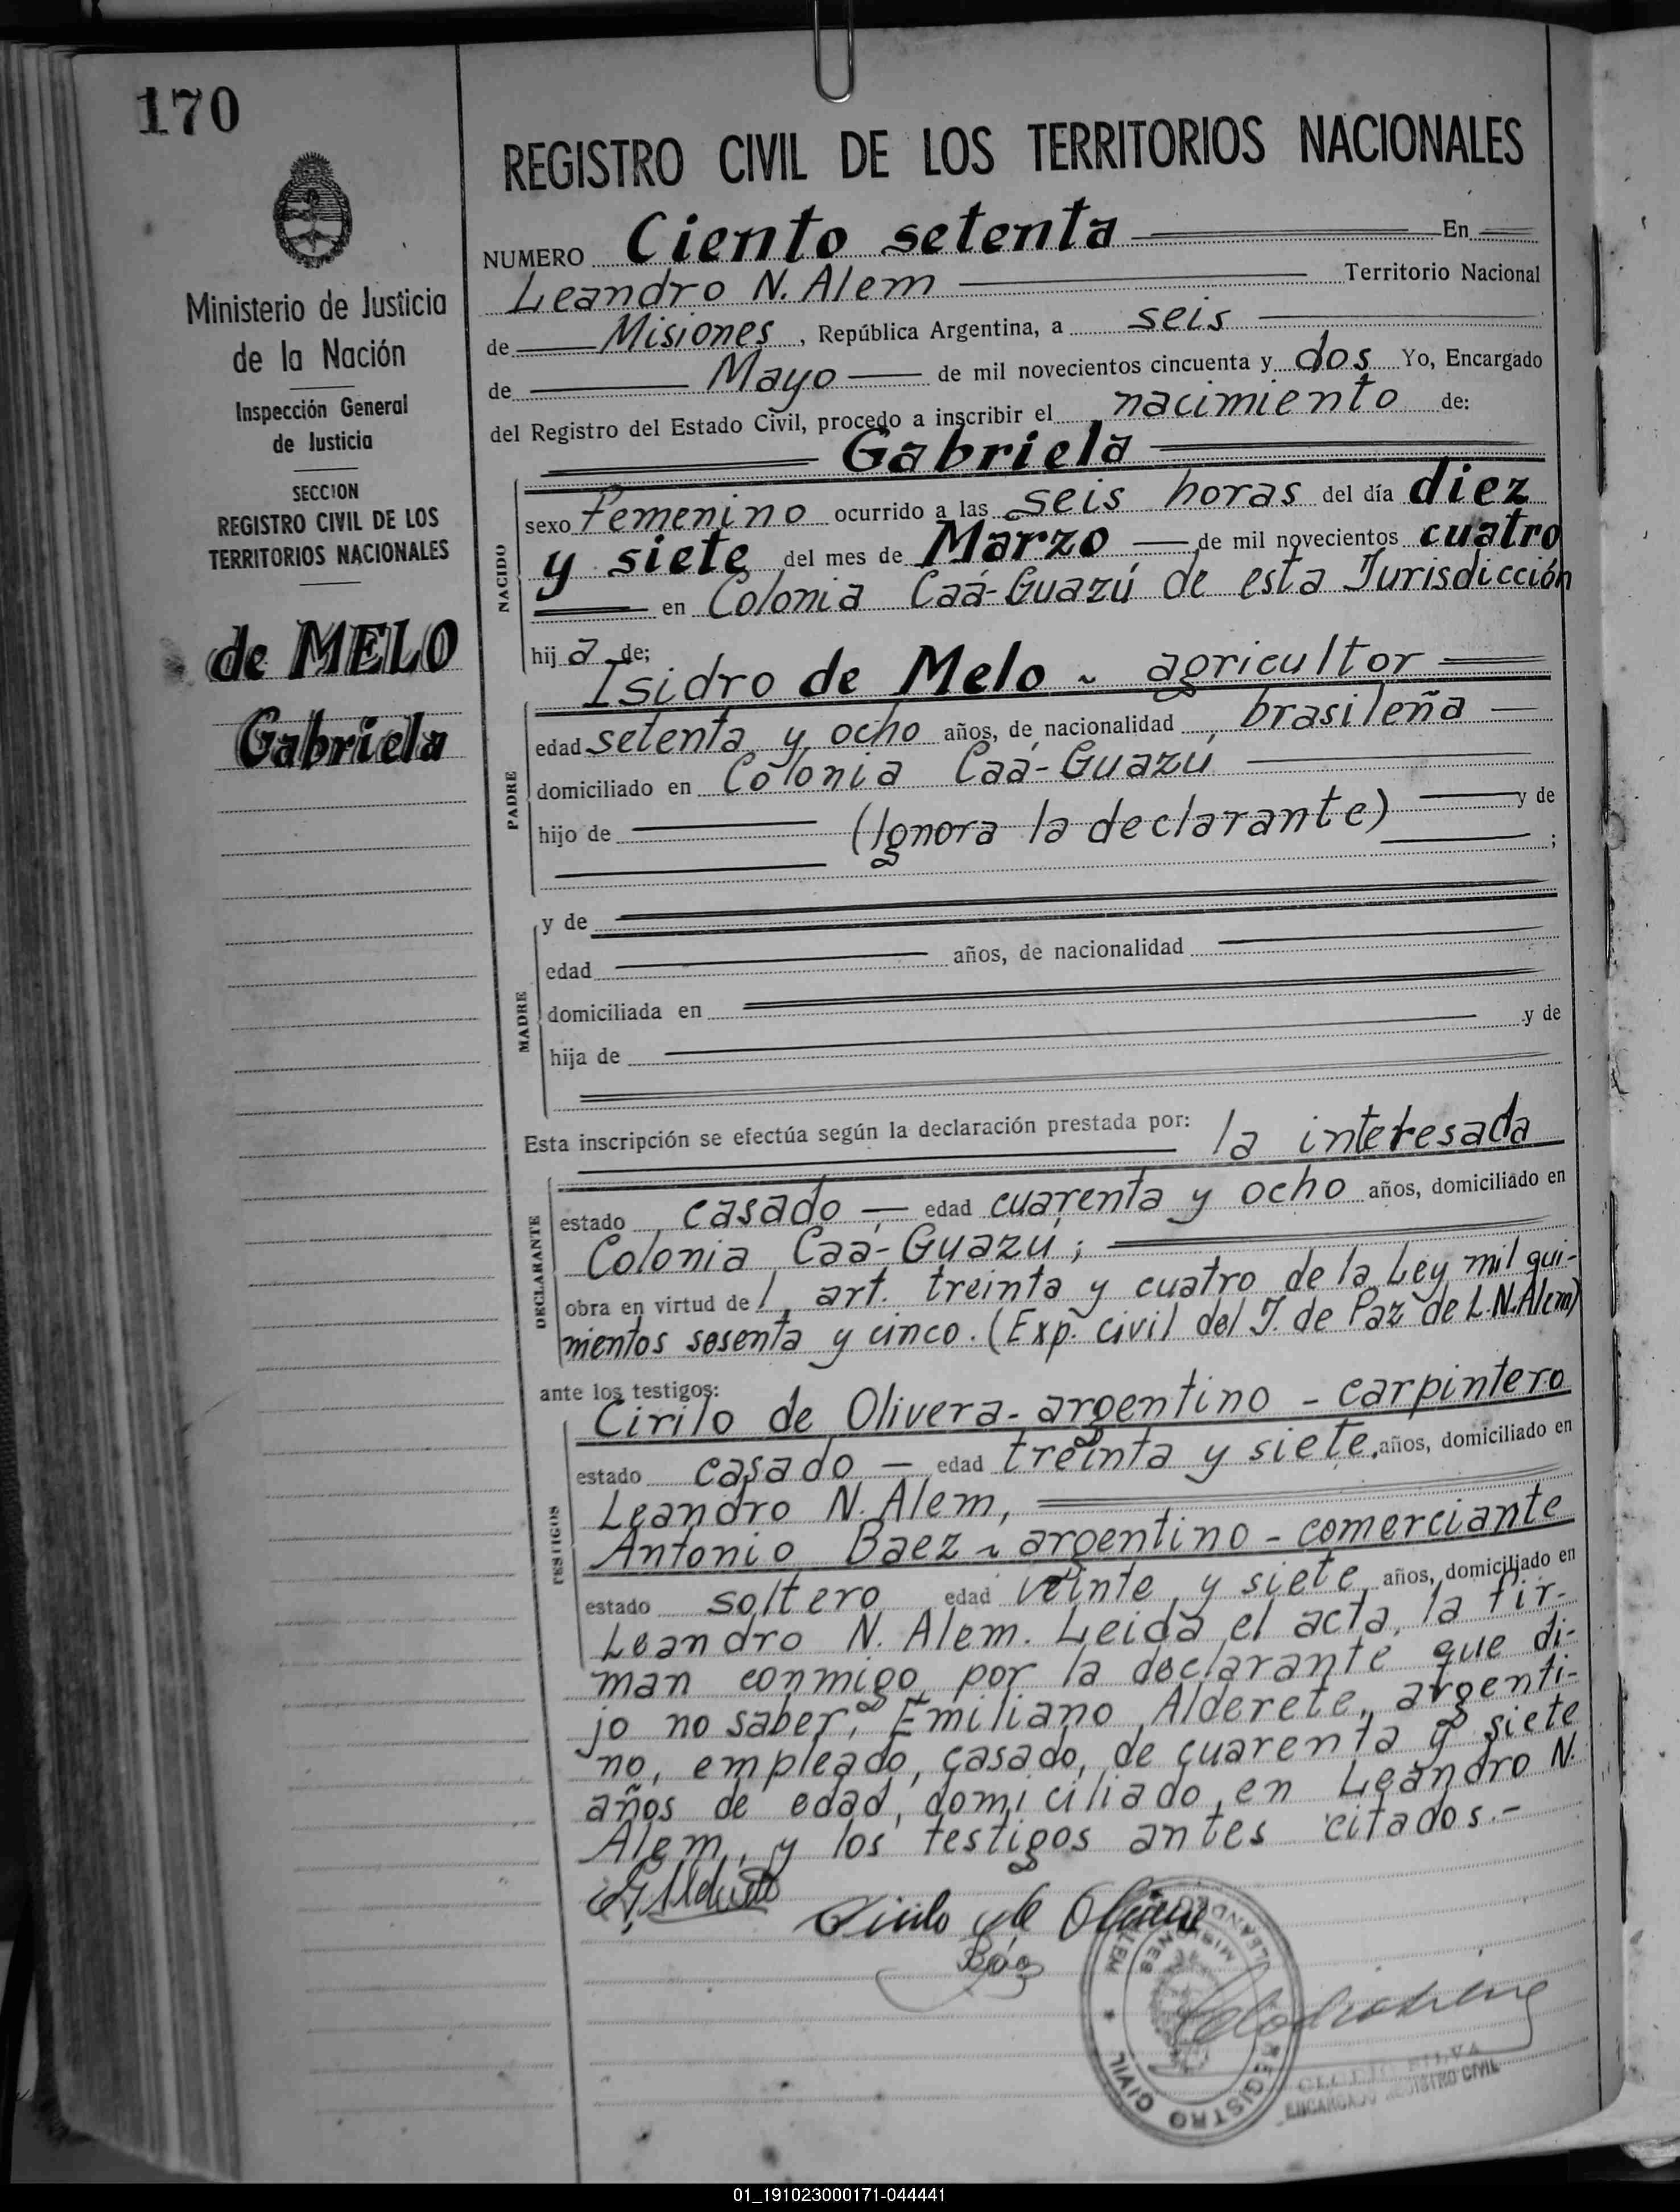 170
Ministerio de Justicia
de la Nación
Inspección General
de Justicia
SECCION
REGISTRO CIVIL DE LOS
TERRITORIOS NACIONALES
de MELO
Gabriela
REGISTRO CIVIL DE LOS TERRITORIOS NACIONALES
NUMERO Ciento setenta En
Leandro N. Alem Territorio Nacional
de Misiones, República Argentina, a seis
de Mayo de mil novecientos cincuenta y dos Yo, Encargado
del Registro del Estado Civil, procedo a inscribir el nacimiento de:
Gabriela
NACIDO
sexo Femenino ocurrido a las seis horas del día diez
y siete del mes de Marzo de mil novecientos cuatro
en Colonia Caá-Guazú de esta Jurisdicción
hija de;
Isidro de Melo - agricultor
PADRE
edad setenta y ocho años, de nacionalidad brasileña
domiciliado en Colonia Caá-Guazú
hijo de (Ignora la declarante) y de
;
MADRE
y de
edad años, de nacionalidad
domiciliada en
hija de y de
Esta inscripción se efectúa según la declaración prestada por: la interesada
DECLARANTE
estado casado edad cuarenta y ocho años, domiciliado en
Colonia Caá-Guazú;
obra en virtud del art. treinta y cuatro de la Ley mil qui-
nientos sesenta y cinco. (Exp. civil del J. de Paz de L.N.Alem)
ante los testigos:
TESTIGOS
Cirilo de Olivera - argentino - carpintero
estado casado - edad treinta y siete, años, domiciliado en
Leandro N. Alem,
Antonio Baez - argentino - comerciante
estado soltero edad veinte y siete años, domiciliado en
Leandro N. Alem. Leida el acta, la fir-
man conmigo, por la declarante que di-
jo no saber, Emiliano Alderete, argenti-
no, empleado, casado, de cuarenta y siete
años de edad, domiciliado en Leandro N.
Alem, y los testigos antes citados.-
Cirilo de Olivera
Báez
LEANDRO N. ALEM
MISIONES
REGISTRO CIVIL
SILVA
ENCARGADO REGISTRO CIVIL
01_191023000171-044441